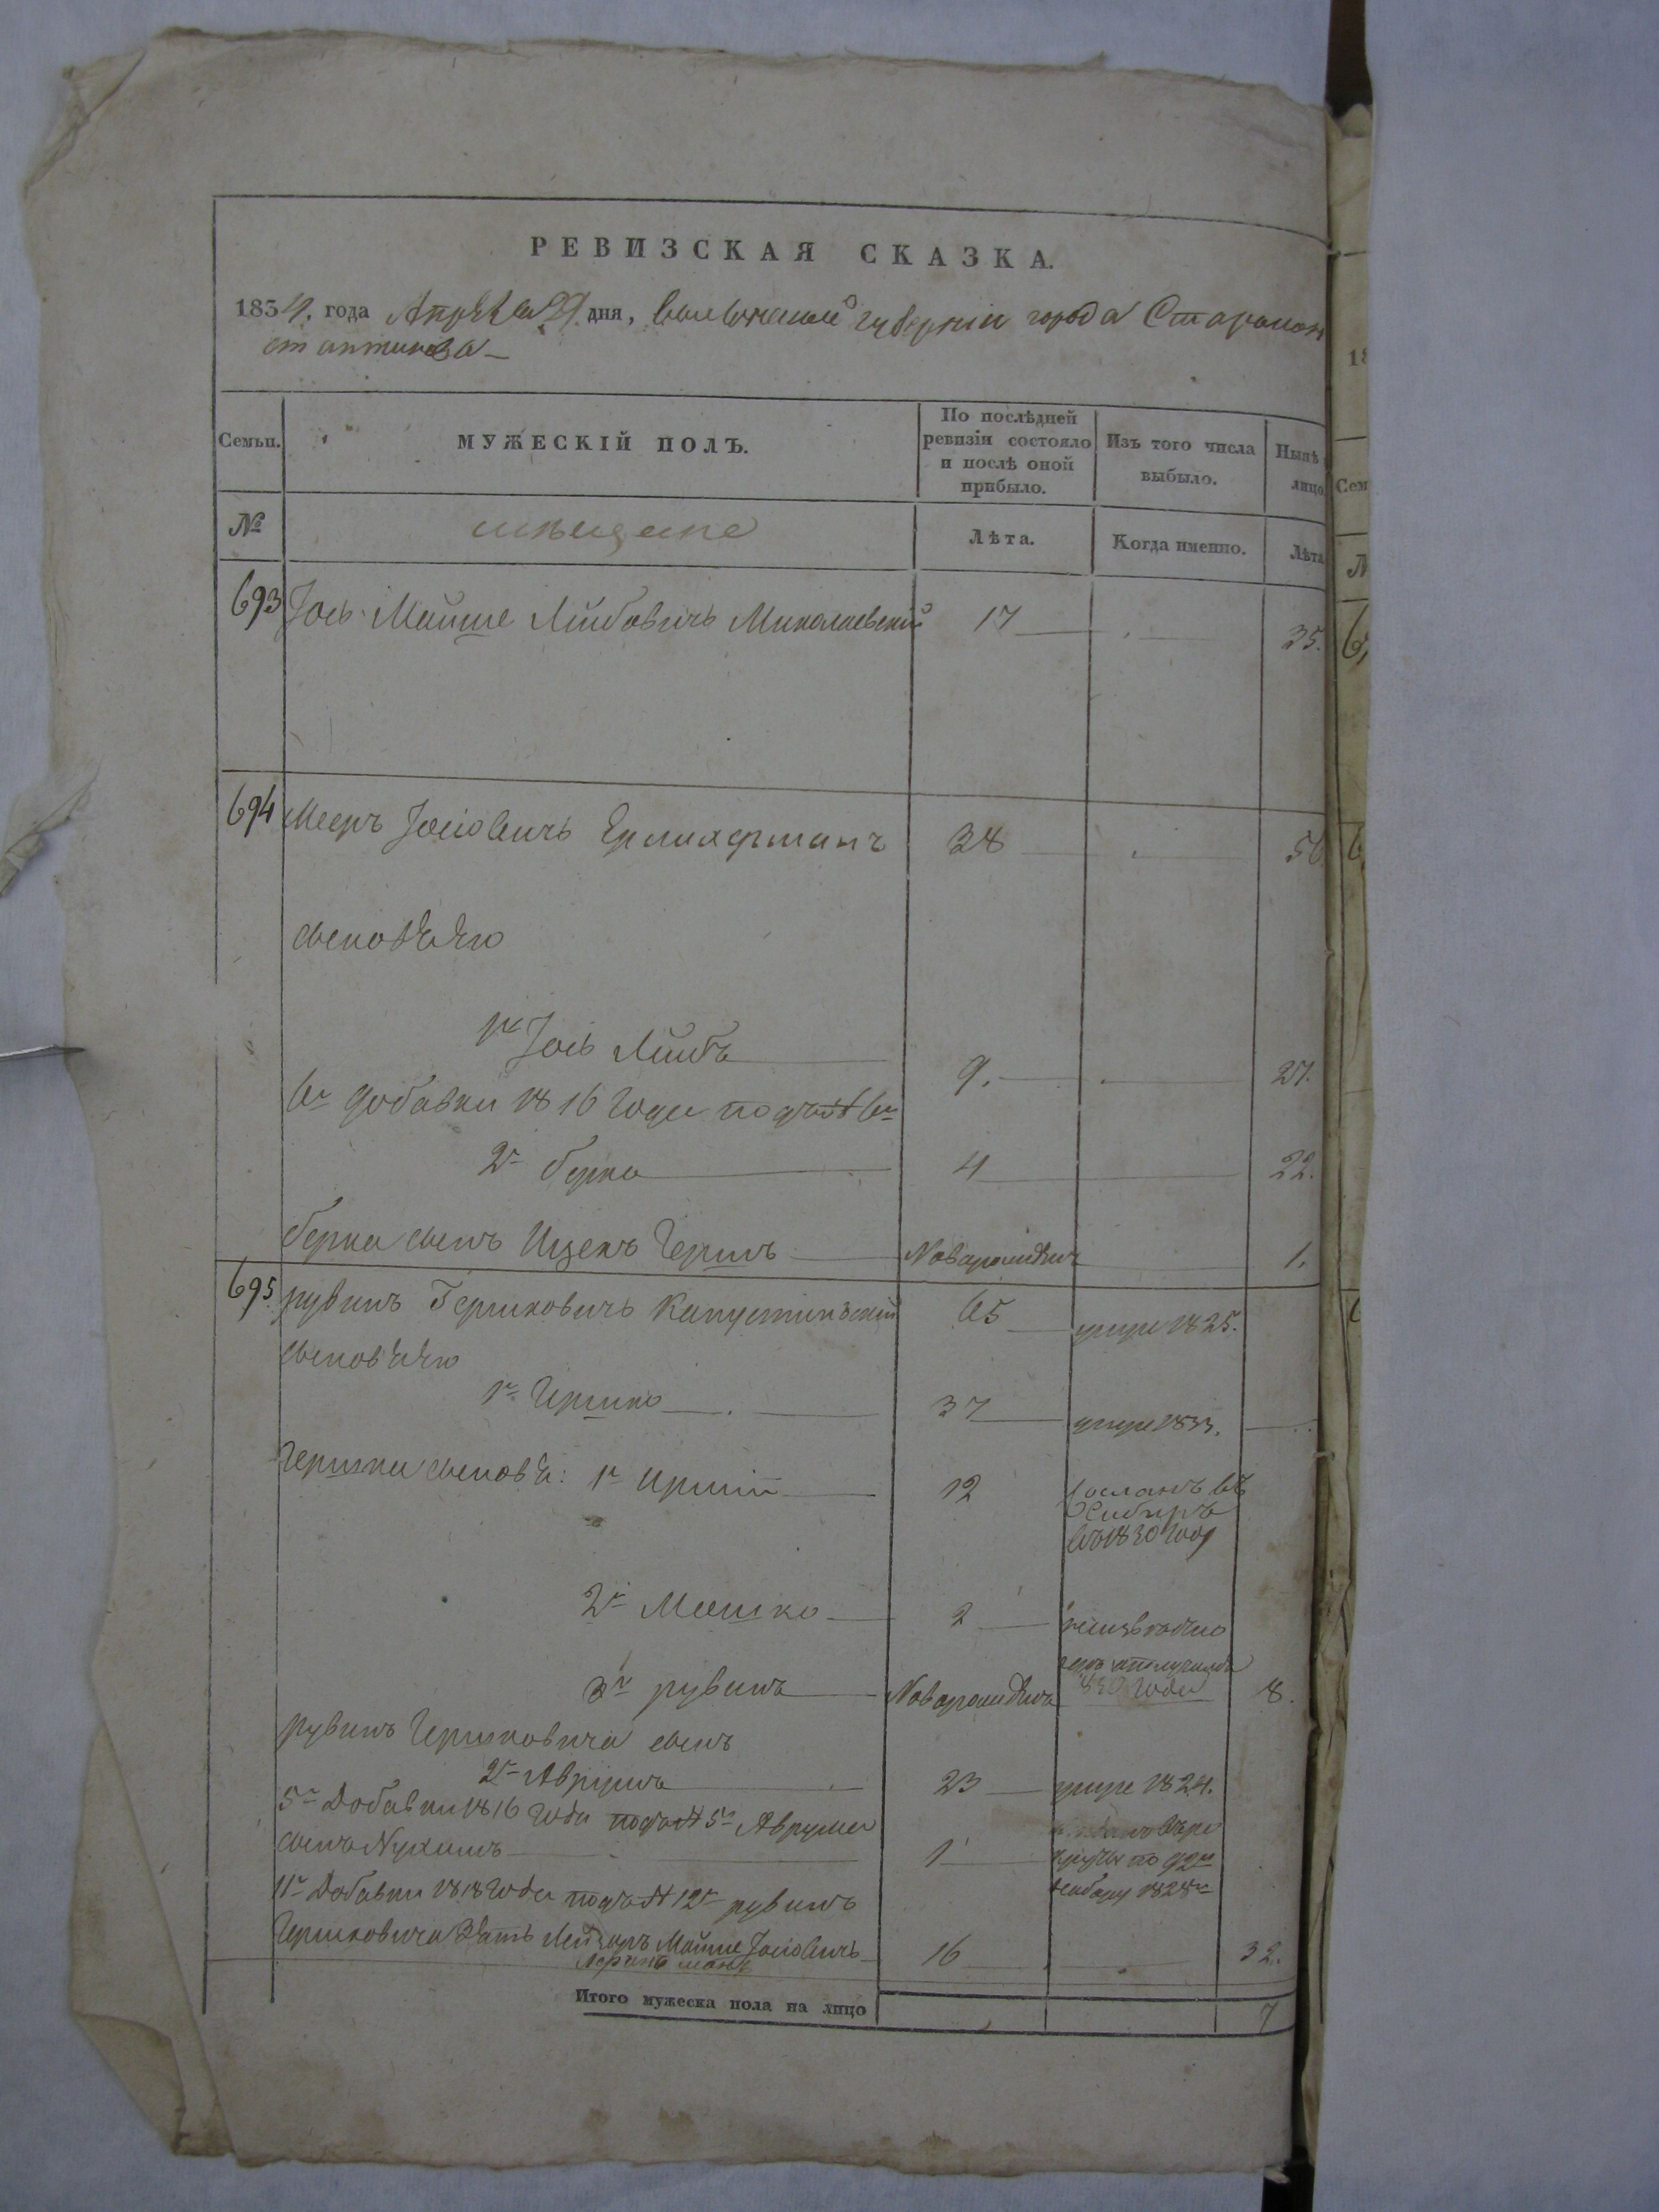 РЕВИЗСКАЯ СКАЗКА.
1834. года Апрѣля 29 дня, Волынской губерніи города Старокон
стантинова
Семьи. МУЖЕСКІЙ ПОЛЪ. По послѣдней ревизіи состояло и послѣ оной прибыло. Изъ того числа выбыло. Нынѣ лицо
№ мѣщане Лѣта. Когда именно. Лѣта
693 Іось Мойше Лейбовичъ Миколаевскій 17 35.
694 Мееръ Іосіовичъ 38 56
сыновъ его
1й Іось Лейбъ 9. 27.
6й добавки 1816 года подъ № 6м
2й Берко 4 22.
Берка сынъ Ицекъ Гершъ Новорожденъ 1.
695. рувинъ Гершковичъ Капустинскій 65 умре 1825.
сыновъ его
1й Гершко 37 умре 1833.
Гершки сыновъ: 1й 12 сосланъ въ
Сибиръ
въ 1830 году
2й Мошко 2 неизвѣстно
гдѣ отлучился
830 года
3й рувинъ Новорожденъ 8.
рувинъ Гершковича сынъ
2й Аврумъ 23 умре 1824.
5й Добавки 1816 года подъ № 5м Аврума
сынъ Нухимъ 1 въ ре
круты по 92му
набору 1828го
11й Добавки 1818 года подъ № 12м рувинъ
Гершковича зять Лейзоръ Мойше Іосіовичъ 16 32.
Итого мужеска пола на лицо 7